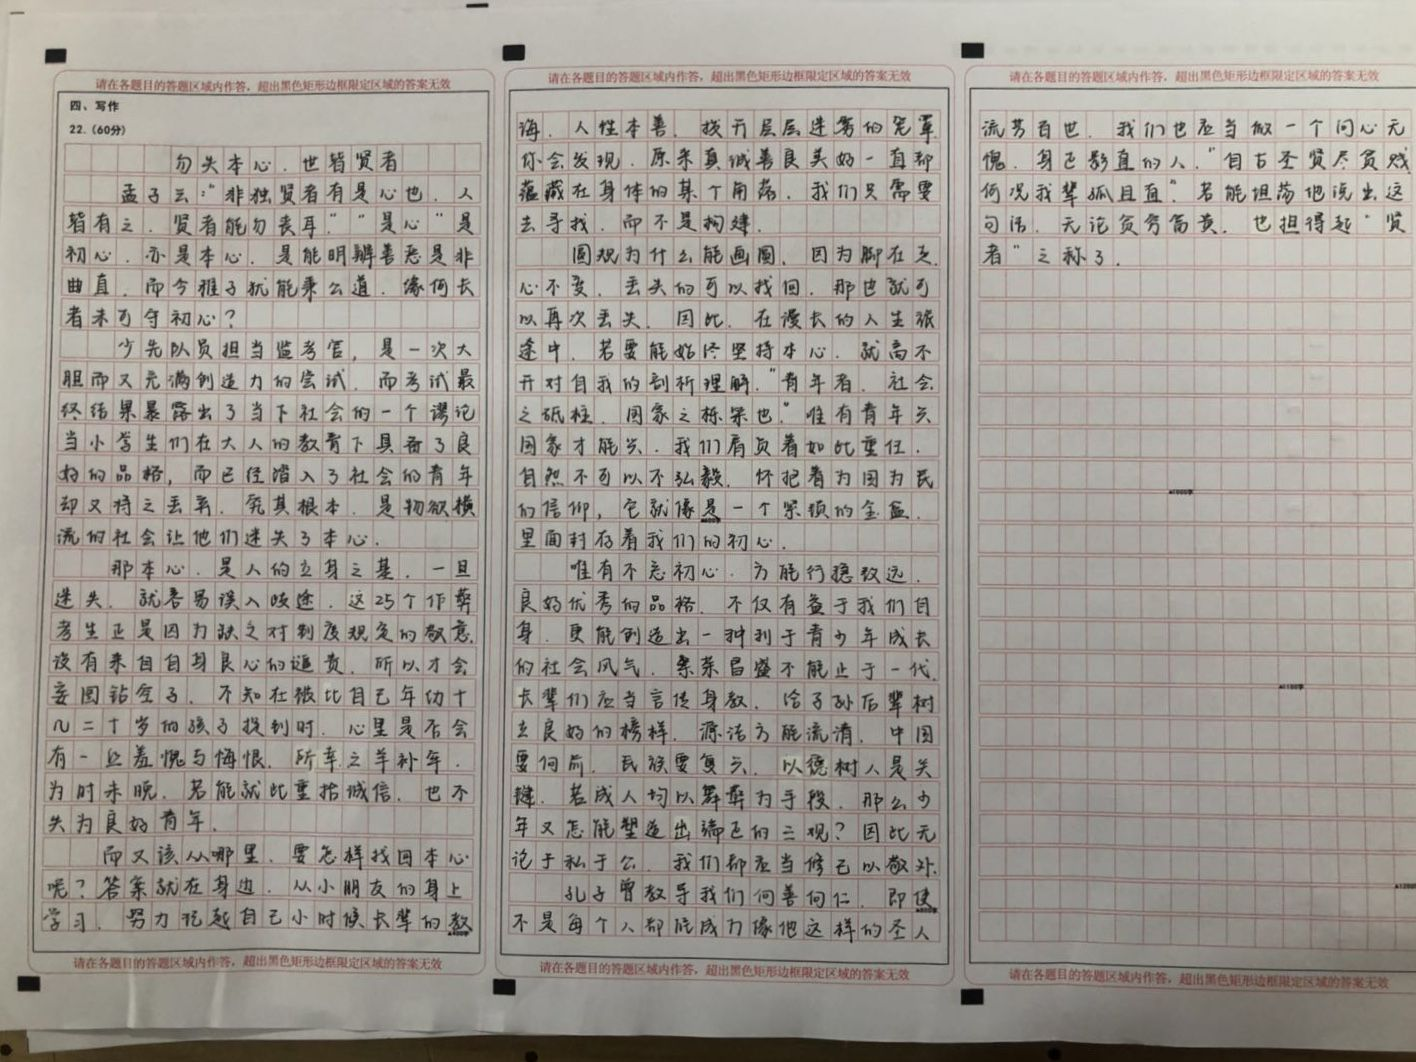 请在各题目的答题区域内作答，超出黑色矩形边框限定区域的答案无效
四、写作
22.（60分）
勿失本心，世皆贤者
孟子云：“非独贤者有是心也，人
皆有之，贤者能勿丧耳。”“是心”是
初心，亦是本心，是能明辨善恶是非
曲直，而今稚子犹能秉公道，缘何长
者未可守初心？
少先队员担当监考官，是一次大
胆而又充满创造力的尝试，而考试最
终结果暴露出了当下社会的一个谬论
当小学生们在大人的教育下具备了良
好的品格，而已经踏入了社会的青年
却又将之丢弃。究其根本，是物欲横
流的社会让他们迷失了本心。
那本心，是人的立身之基，一旦
迷失，就容易误入歧途，这25个作弊
考生正是因为缺乏对制度规定的敬意，
没有来自自身良心的谴责，所以才会
妄图钻空子，不知在被比自己年幼十
几二十岁的孩子捉到时，心里是否会
有一丝羞愧与悔恨，所幸之羊补牢，
为时未晚，若能就此重拾诚信，也不
失为良好青年。
而又该从哪里，要怎样找回本心
呢？答案就在身边，从小朋友的身上
学习，努力忆起自己小时候长辈的教
请在各题目的答题区域内作答，超出黑色矩形边框限定区域的答案无效
请在各题目的答题区域内作答，超出黑色矩形边框限定区域的答案无效
诲，人性本善，拨开层层迷雾的笼罩
你会发现，原来真诚善良美好一直都
蕴藏在身体的某个角落，我们只需要
去寻找，而不是构建。
圆规为什么能画圆，因为脚在走，
心不变，丢失的可以找回，那也就可
以再次丢失，因此，在漫长的人生旅
途中，若要能始终坚持本心，就离不
开对自我的剖析理解。“青年者，社会
之砥柱，国家之栋梁也”唯有青年兴
国家才能兴，我们肩负着如此重任，
自然不可以不弘毅，怀抱着为国为民
的信仰，它就像是一个紧锁的金盒，
里面封存着我们的初心。
唯有不忘初心，方能行稳致远，
良好优秀的品格，不仅有益于我们自
身，更能创造出一种利于青少年成长
的社会风气，繁荣昌盛不能止于一代，
长辈们应当言传身教，给子孙后辈树
立良好的榜样，源洁方能流清，中国
要向前，民族要复兴，以德树人是关
键，若成人均以舞弊为手段，那么少
年又怎能塑造出端正的三观？因此无
论于私于公，我们都应当修己以敬外，
孔子曾教导我们向善向仁，即使
不是每个人都能成为像他这样的圣人
请在各题目的答题区域内作答，超出黑色矩形边框限定区域的答案无效
请在各题目的答题区域内作答，超出黑色矩形边框限定区域的答案无效
流芳百世，我们也应当做一个问心无
愧，身正影直的人，“自古圣贤尽贫贱
何况我辈孤且直”，若能坦荡地说出这
句话，无论贫穷富贵，也担得起“贤
者”之称了。
▲1000字
▲1100字
▲1200字
请在各题目的答题区域内作答，超出黑色矩形边框限定区域的答案无效